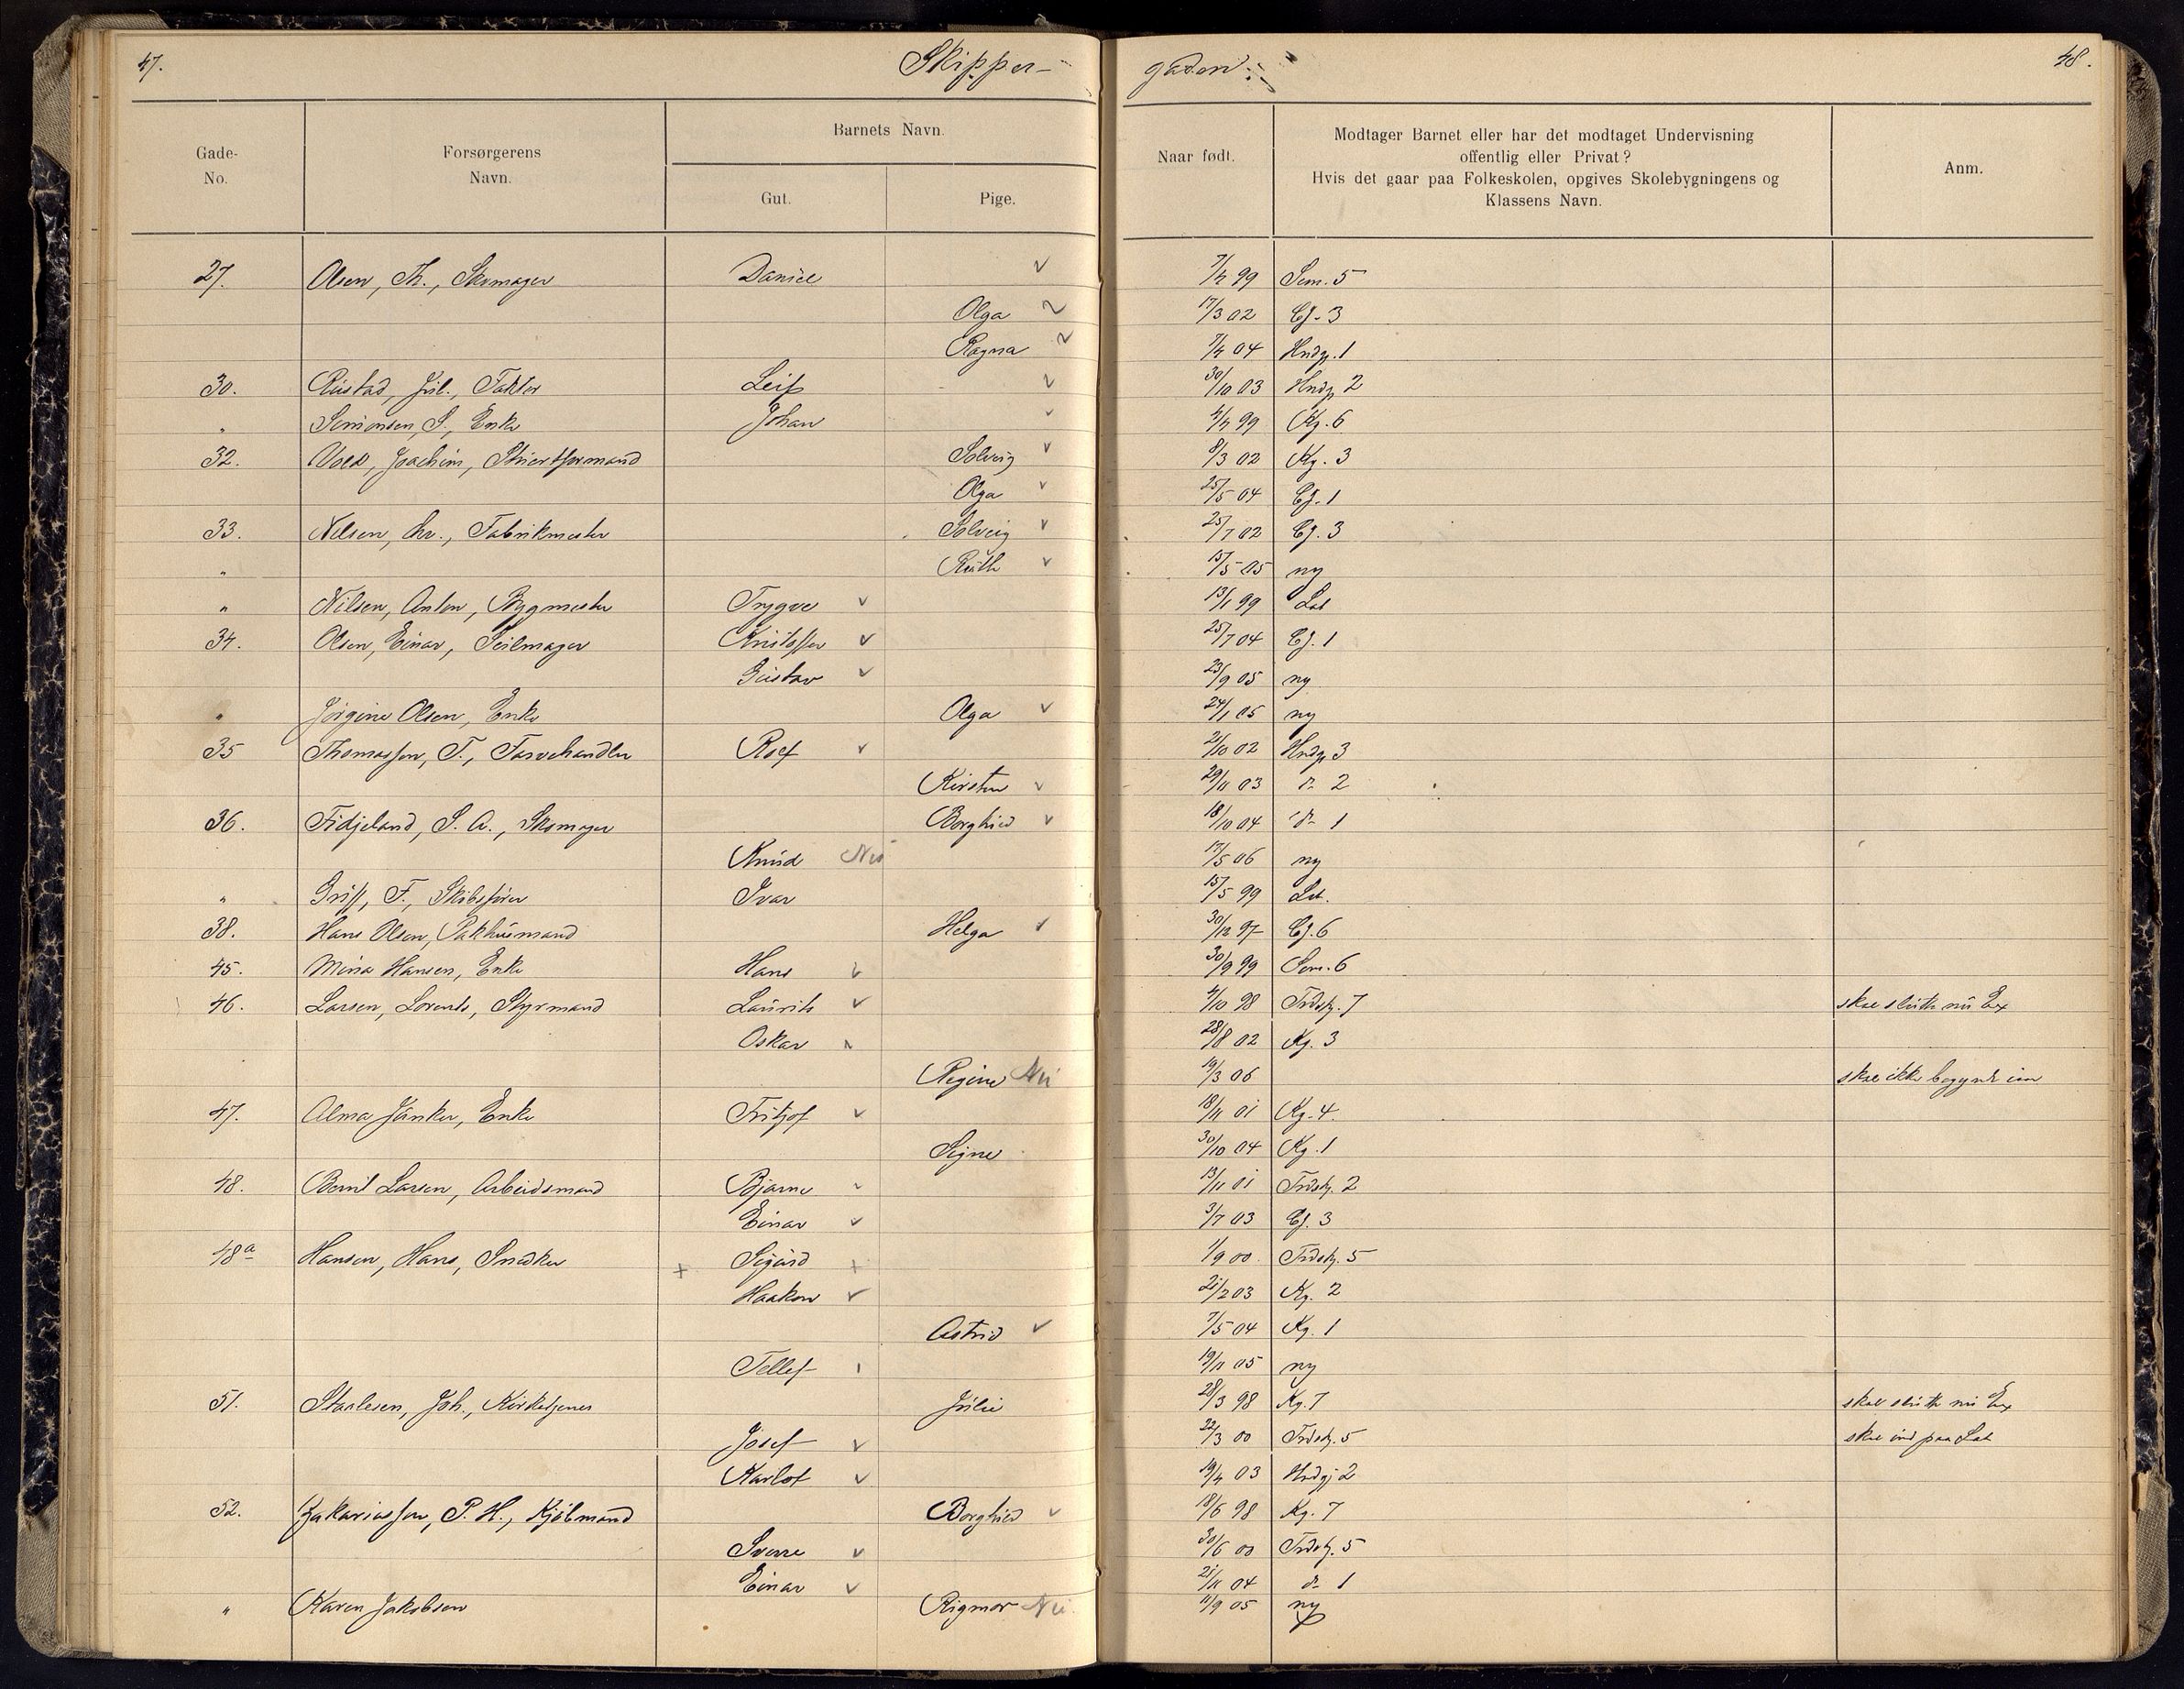 47.
Skipper-
gaden.
48.
Gade-
No.
Forsørgerens
Navn.
Barnets Navn.
Gut.
Pige.
Naar født.
Modtager Barnet eller har det modtaget Undervisning
offentlig eller Privat?
Hvis det gaar paa Folkeskolen, opgives Skolebygningens og
Klassens Navn.
Anm.
27. Olsen, Th., Skomager Daniel 7/4 99 Sem. 5
Olga 17/3 02 Cf. 3
Ragna 7/4 04 Hndg. 1
30. Rustad, Jul., Faktor Leif 30/10 03 Hndg 2
" Simonsen, S., Enke Johan 4/4 99 Kg. 6
32. Vold, Joachim, Solveig 8/3 02 Kg. 3
Olga 25/5 04 Cf. 1
33. Nilsen, Chr., Fabrikmester Solveig 25/7 02 Cf. 3
" Ruth 15/5 05 ny
" Nilsen, Anton, Bygmester Trygve 13/1 99 Lat
34. Olsen, Einar, Seilmager Kristoffer 25/7 04 Cf. 1
Gustav 23/9 05 ny
" Jørgine Olsen, Enke Olga 24/1 05 ny
35 Thomassen, T., Farvehandler Rolf 2/10 02 Hndg 3
Kirsten 29/11 03 do 2
36. Fidjeland, S. A., Skomager Borghild 18/10 04 do 1
Knud Nei 17/5 06 ny
" F., Skibsfører Ivar 15/5 99 Lat.
38. Hans Olsen, Pakhusmand Helga 30/12 97 Cf. 6
45. Mina Hansen, Enke Hans 30/9 99 Sem. 6
46. Larsen, Lorents, Styrmand Laurits 4/10 98 Trdstg. 7 skal slutte nu Ex
Oskar 28/8 02 Kg. 3
Regine Nei 19/3 06 skal ikke begynde iaar
47. Alma Junker, Enke Fritjof 18/11 01 Kg. 4.
Signe 30/10 04 Kg. 1
48. Bernt Larsen, Arbeidsmand Bjarne 13/11 01 Trdstg. 2
Einar 3/7 03 Cf. 3
48a Hansen, Hans, Snedker + Sigurd + 1/9 00 Trdstg. 5
Haakon 21/2 03 Kg. 2
Astrid 7/5 04 Kg. 1
Tellef 19/11 05 ny
51. Starlesen, Joh., Kirketjener Julie 28/3 98 Kg. 7 skal slutte nu Ex
Josef 22/3 00 Trdstg. 5 skal ind paa Lat
Karlot 19/4 03 Hndg 2
52. Zakariassen, P. H., Kjøbmand Borghild 18/6 98 Kg. 7
Sverre 30/6 00 Trdstg. 5
Einar 21/11 04 do 1
" Karen Jakobsen Rigmor Nei 11/9 05 ny